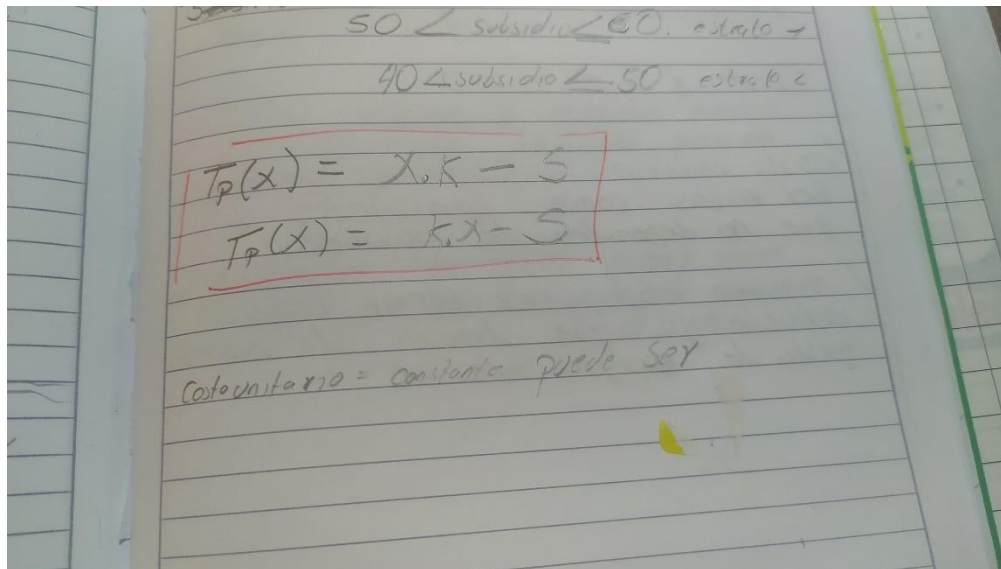 50 < subsidio ≤ 60. estrato 1
40 < subsidio ≤ 50 estrato 2
Tp(x) = x.k - S
Tp(x) = k.x - S
Costo unitario = constante puede ser